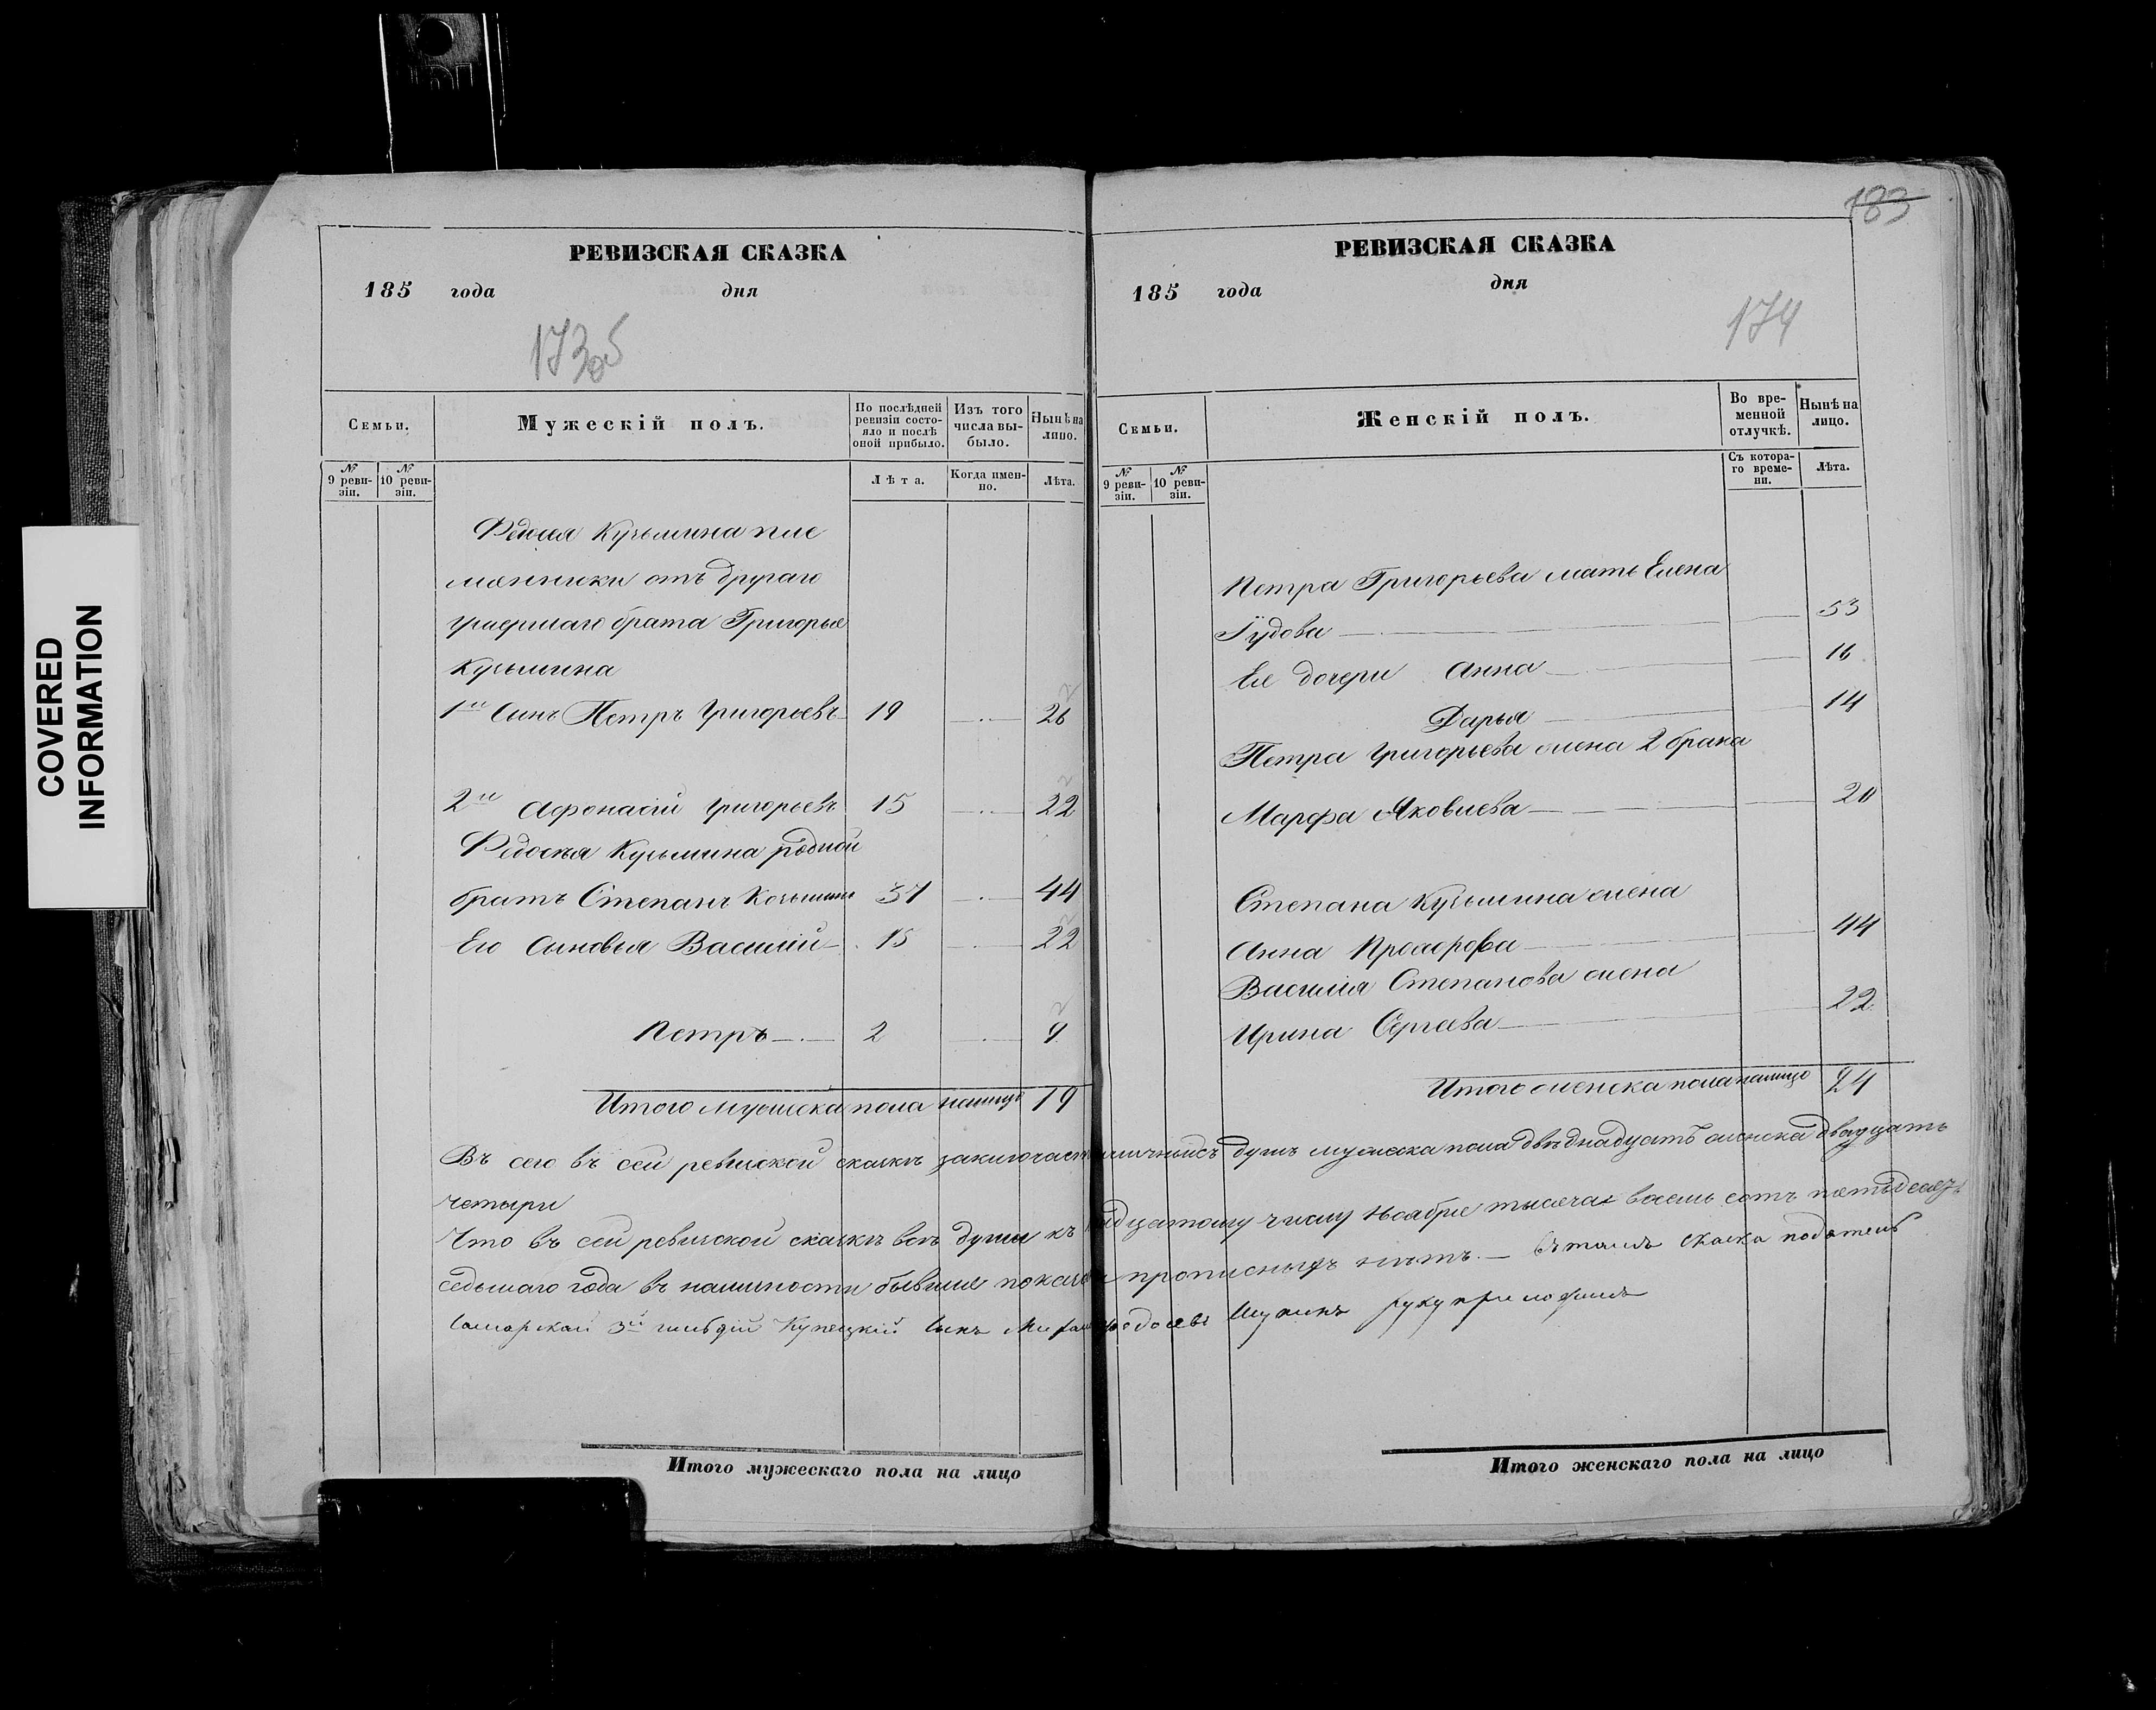 COVERED
INFORMATION
РЕВИЗСКАЯ СКАЗКА
185 года дня
173об
Семьи.
Мужескій полъ.
По послѣдней ревизіи состояло и послѣ оной прибыло.
Изъ того числа выбыло.
Нынѣ на лицо.
№ 9 ревизіи.
№ 10 ревизіи.
Лѣта.
Когда именно.
Лѣта.
Федосѣя Кузьмина пле
мянники отъ другаго
умершаго брата Григорья
Кузьмина
1й Сынъ Петръ Григорьевъ 19 26
2й Афонасій Григорьевъ 15 22
Федосѣя Кузьмина родной
братъ Степанъ Козьминъ 37 44
Его сыновья Василій 15 22
Петръ 2 9
Итого мужеска пола налицо 19
183
РЕВИЗСКАЯ СКАЗКА
185 года дня
174
Семьи.
Женскій полъ.
Во временной отлучкѣ.
Нынѣ на лицо.
№ 9 ревизіи.
№ 10 ревизіи.
Съ котораго времени.
Лѣта.
Петра Григорьева мать Елена
Іудова 53
Ее дочери Анна 16
Дарья 14
Петра Григорьева жена 2 брака
Марфа Яковлева 20
Степана Кузьмина жена
Анна Прохорова 44
Василія Степанова жена
Ирина Сергеева 22
Итого женска пола налицо 24
Въ сего въ сей ревизской скаскѣ заключает личныхъ душъ мужеска пола двѣднадцать женска двадцать
четыри
Что въ сей ревизской скаскѣ всѣ души къ надцатому числу Ноабрие тысяча восемь сотъ петьдесят
седьмаго года въ наличности бывшие показ прописныхъ нѣтъ. — Въ томъ скаска податель
Самарскай 3й гильдіи Купецкій Сынъ Федосевъ руку приложилъ
Итого мужескаго пола на лицо
Итого женскаго пола на лицо